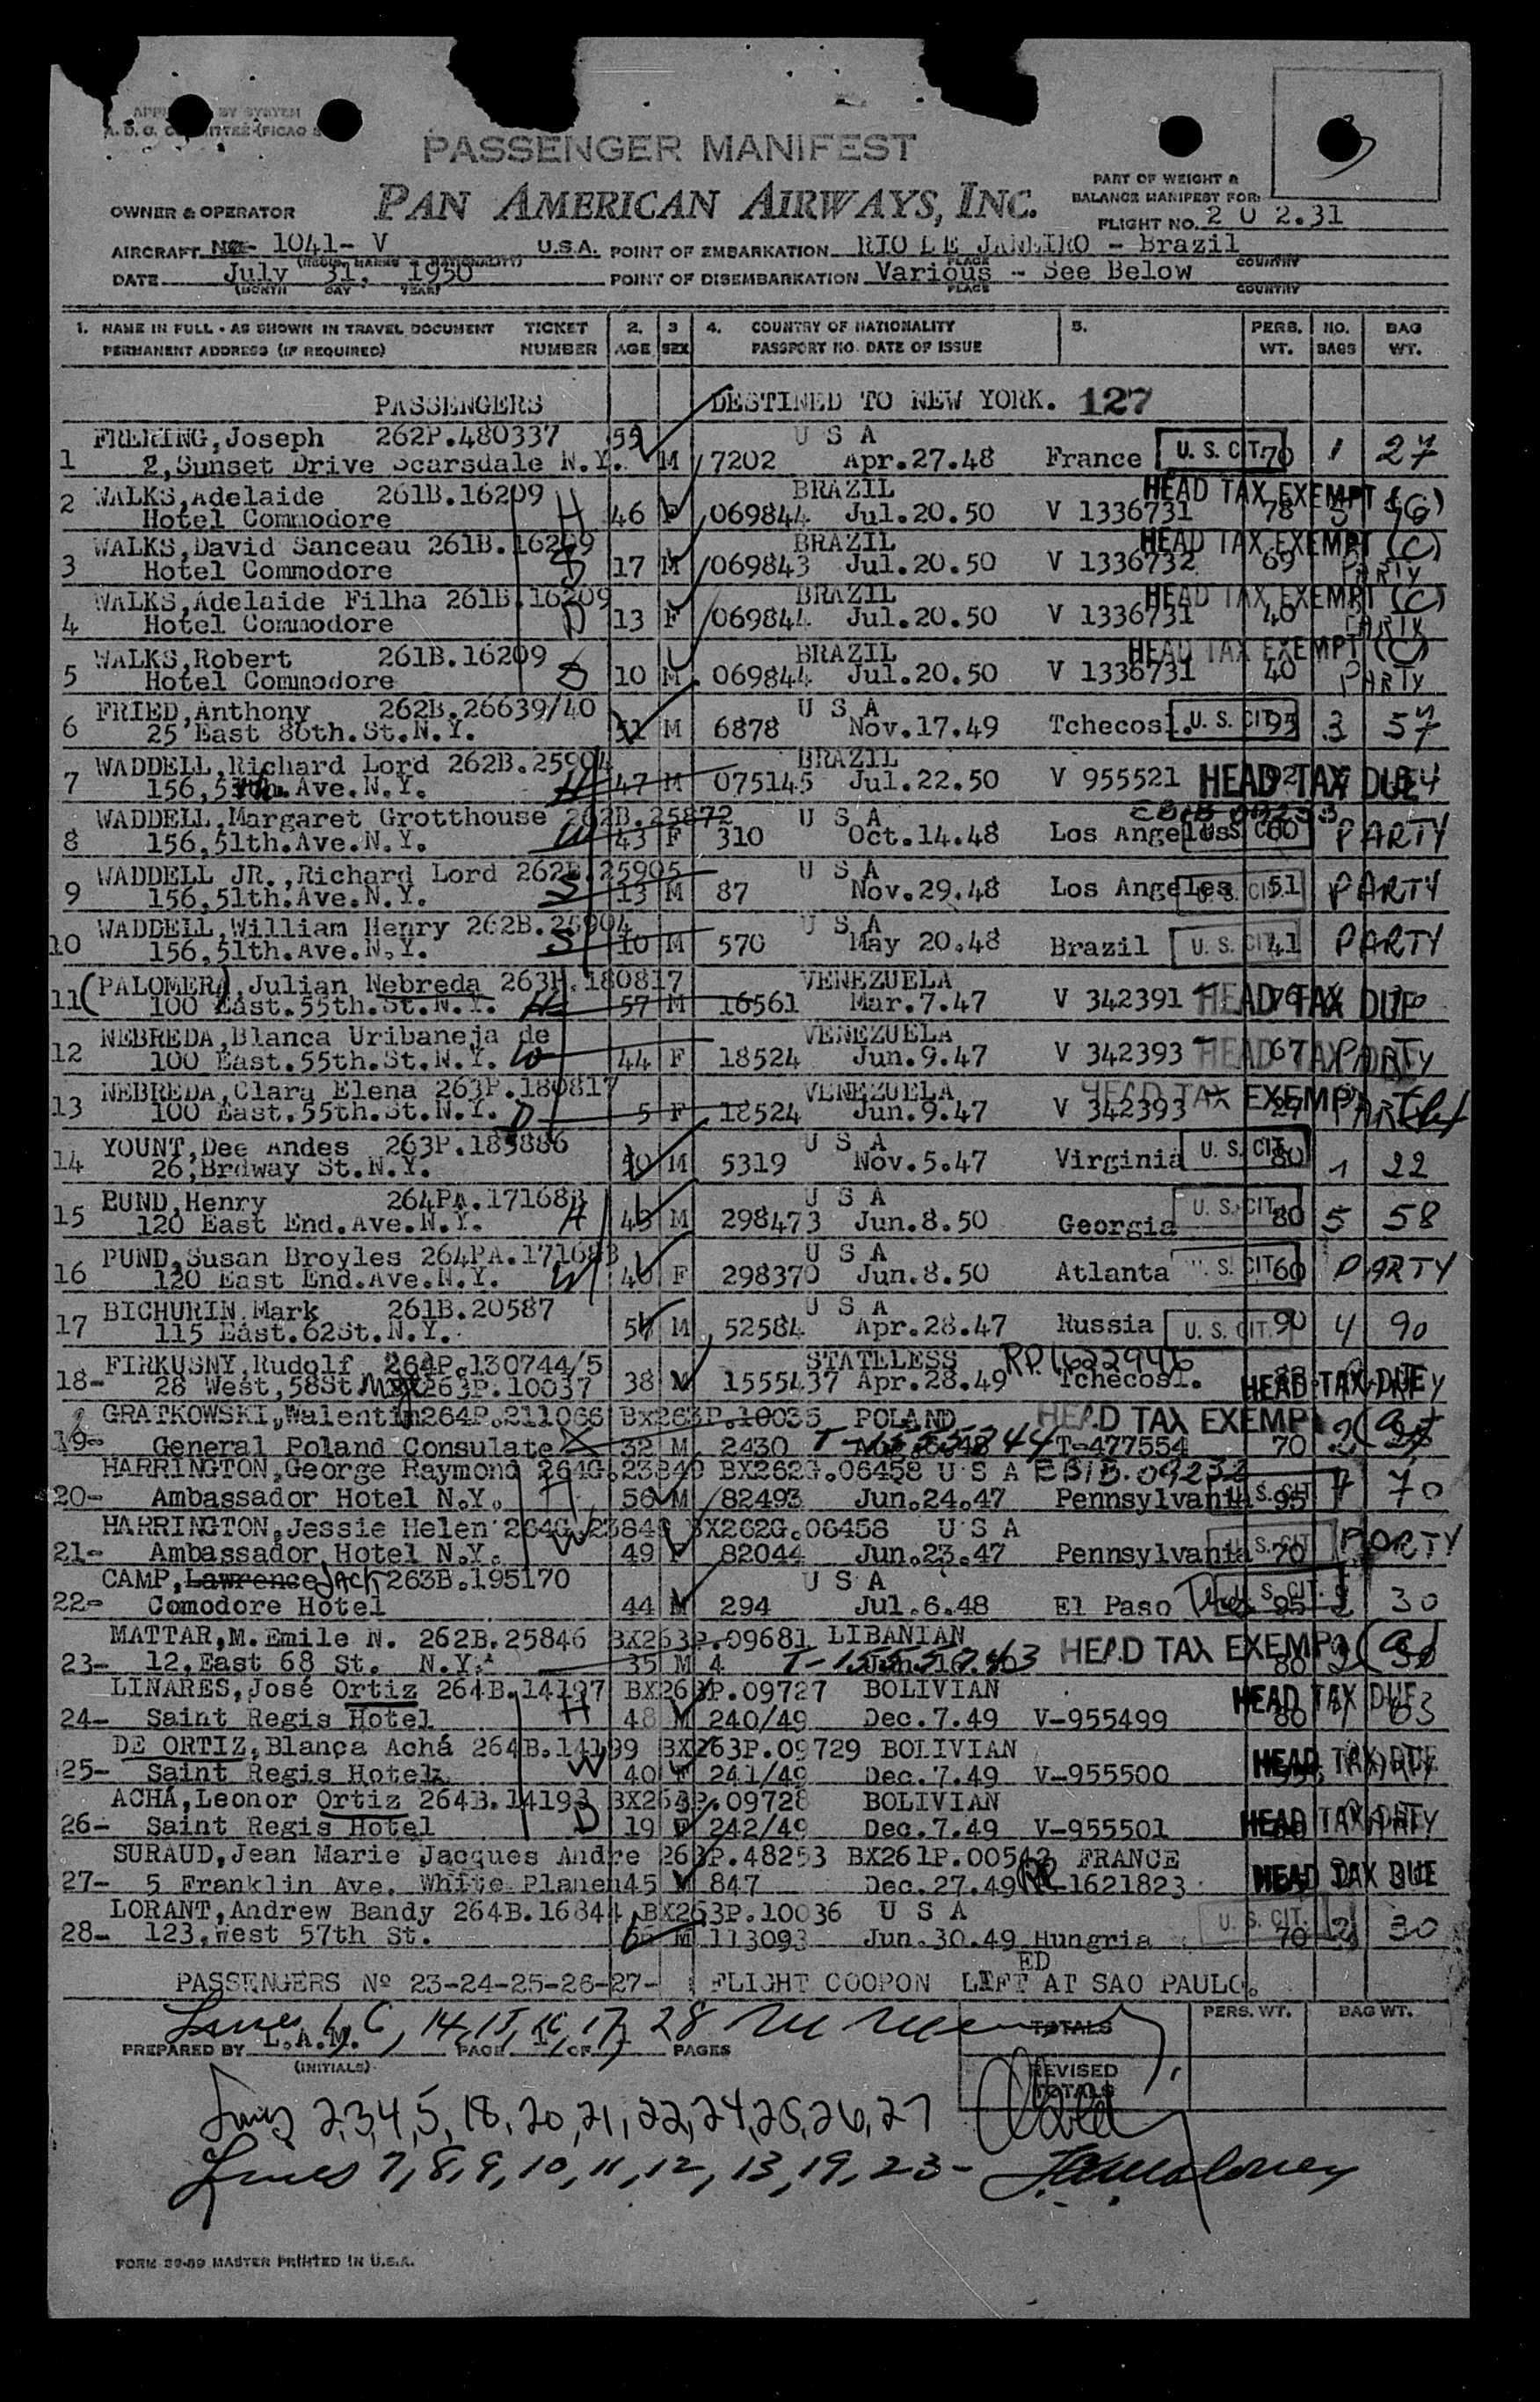 PASSENGER MANIFEST
PAN AMERICAN AIRWAYS, INC.
PART OF WEIGHT &
BALANCE MANIFEST FOR:
OWNER & OPERATOR
FLIGHT NO. 2 0 2.31
AIRCRAFT 1041- V U.S.A. POINT OF EMBARKATION RIO DE JANEIRO - Brazil
PLACE COUNTRY
DATE July 31, 1950 POINT OF DISEMBARKATION Various - See Below
(MONTH DAY YEAR) PLACE COUNTRY
1. NAME IN FULL - AS SHOWN IN TRAVEL DOCUMENT TICKET 2. 3 4. COUNTRY OF NATIONALITY 5. PERS. NO. BAG
PERMANENT ADDRESS (IF REQUIRED) NUMBER AGE SEX PASSPORT NO. DATE OF ISSUE WT. BAGS WT.
PASSENGERS DESTINED TO NEW YORK. 127
FRERING, Joseph 262P.480337 55 U S A
1 2, Sunset Drive Scarsdale N.Y. M 7202 Apr.27.48 France U. S. CIT. 70 1 27
WALKS, Adelaide 261B.16209 BRAZIL HEAD TAX EXEMPT (G)
2 Hotel Commodore H 46 F 069844 Jul.20.50 V 1336731 78
WALKS, David Sanceau 261B.16209 BRAZIL HEAD TAX EXEMPT (C)
3 Hotel Commodore S 17 M 069843 Jul.20.50 V 1336732 69 PARTY
WALKS, Adelaide Filha 261B.16209 BRAZIL HEAD TAX EXEMPT (C)
4 Hotel Commodore D 13 F 069844 Jul.20.50 V 1336731 40 PARTY
WALKS, Robert 261B.16209 BRAZIL HEAD TAX EXEMPT (C)
5 Hotel Commodore S 10 M 069844 Jul.20.50 V 1336731 40 PARTY
FRIED, Anthony 262B.26639/40 U S A
6 25 East 86th.St.N.Y. 51 M 6878 Nov.17.49 Tchecosl. U. S. CIT. 95 3 57
WADDELL, Richard Lord 262B.25904 BRAZIL
7 156,5th.Ave.N.Y. H 47 M 075145 Jul.22.50 V 955521 HEAD TAX DUE
WADDELL, Margaret Grotthouse 262B.25872 U S A
8 156,51th.Ave.N.Y. W 43 F 310 Oct.14.48 Los Angeles U. S. CIT. 60 PARTY
WADDELL JR., Richard Lord 262B.25905 U S A
9 156,51th.Ave.N.Y. S 13 M 87 Nov.29.48 Los Angeles U. S. CIT. 51 PARTY
WADDELL, William Henry 262B.25904 U S A
10 156,51th.Ave.N.Y. S 10 M 570 May 20.48 Brazil U. S. CIT. 41 PARTY
(PALOMERA), Julian Nebreda 263P.180817 VENEZUELA
11 100 East.55th.St.N.Y. H 57 M 16561 Mar.7.47 V 342391 HEAD TAX DUE
NEBREDA, Blanca Uribaneja de VENEZUELA
12 100 East.55th.St.N.Y. W 44 F 18524 Jun.9.47 V 342393 HEAD TAX 67 PARTY
NEBREDA, Clara Elena 263P.180817 VENEZUELA HEAD TAX EXEMPT
13 100 East.55th.St.N.Y. D 5 F 18524 Jun.9.47 V 342393 PARTY
YOUNT, Dee Andes 263P.185886 U S A
14 26, Brdway St.N.Y. M 5319 Nov.5.47 Virginia U. S. CIT. 80 1 22
PUND, Henry 264PA.171683 U S A
15 120 East End.Ave.N.Y. H M 298473 Jun.8.50 Georgia U. S. CIT. 80 5 58
PUND, Susan Broyles 264PA.171683 U S A
16 120 East End.Ave.N.Y. W F 298370 Jun.8.50 Atlanta U. S. CIT. 60 PARTY
BICHURIN, Mark 261B.20587 U S A
17 115 East.62St.N.Y. M 52584 Apr.28.47 Russia U. S. CIT. 90 4 90
FIRKUSNY, Rudolf 264P.130744/5 STATELESS RP 1622946
18- 28 West,58St. 263P.10037 38 M 1555437 Apr.28.49 Tchecosl. HEAD TAX DUE
GRATKOWSKI, Walentin 264P.211066 BX263P.10035 POLAND HEAD TAX EXEMPT
19- General Poland Consulate 32 M 2430 T-477554 70
HARRINGTON, George Raymond 264G.23849 BX262G.06458 U S A
20- Ambassador Hotel N.Y. H 56 M 82493 Jun.24.47 Pennsylvania U. S. CIT. 95 7 70
HARRINGTON, Jessie Helen 264G.23848 BX262G.06458 U S A
21- Ambassador Hotel N.Y. W 49 F 82044 Jun.23.47 Pennsylvania U. S. CIT. 70 PARTY
CAMP, Lawrence Jack 263B.195170 U S A
22- Comodore Hotel 44 M 294 Jul.6.48 El Paso U. S. CIT. 95 30
MATTAR, M. Emile N. 262B.25846 BX263P.09681 LIBANIAN
23- 12, East 68 St. N.Y. 35 M 4 HEAD TAX EXEMPT 80
LINARES, José Ortiz 264B.14197 BX263P.09727 BOLIVIAN HEAD TAX DUE
24- Saint Regis Hotel H 48 M 240/49 Dec.7.49 V-955499 80 63
DE ORTIZ, Blanca Achá 264B.14199 BX263P.09729 BOLIVIAN HEAD TAX DUE
25- Saint Regis Hotel W 40 F 241/49 Dec.7.49 V-955500
ACHÁ, Leonor Ortiz 264B.14198 BX263P.09728 BOLIVIAN
26- Saint Regis Hotel D 19 F 242/49 Dec.7.49 V-955501 HEAD TAX
SURAUD, Jean Marie Jacques Andre 263P.48253 BX261P.00542 FRANCE
27- 5 Franklin Ave. White Planen 45 M 847 Dec.27.49 RP-1621823 HEAD TAX DUE
LORANT, Andrew Bandy 264B.16844 BX263P.10036 U S A
28- 123, West 57th St. M 113093 Jun.30.49 Hungria U. S. CIT. 70 2 30
PASSENGERS Nº 23-24-25-26-27- FLIGHT COOPON LIFTED AT SAO PAULO.
Lines 1, 6, 14, 15, 16, 17, 28
PREPARED BY L.A.M. PAGE 1 OF 1 PAGES
(INITIALS)
TOTALS PERS. WT. BAG WT.
REVISED
TOTALS
Lines 2,3,4,5,18,20,21,22,24,25,26,27
Lines 7,8,9,10,11,12,13,19,23-
FORM 39-99 MASTER PRINTED IN U.S.A.